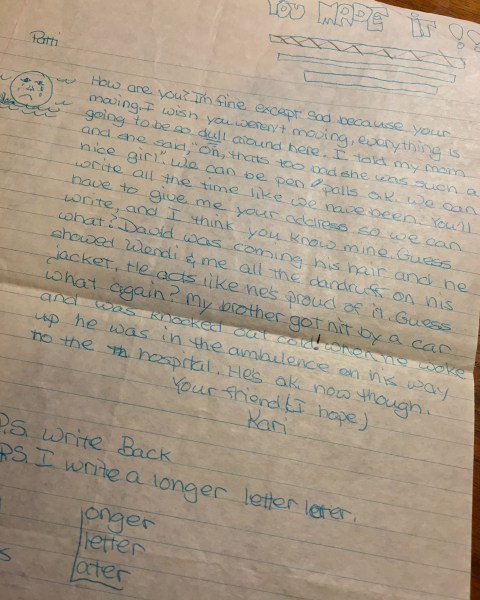 YOU MADE IT!!
Patti
How are you? I'm fine except sad because your
moving. I wish you weren't moving, everything is
going to be so dull around here. I told my mom
and she said, "oh, thats too bad she was such a
nice girl". We can be pen palls o.k. We can
write all the time like we have been. You'll
have to give me your address so we can
write, and I think you know mine. Guess
what? David was coming his hair and he
showed Wendi & me all the dandruff on his
jacket. He acts like he's proud of it. Guess
what again? My brother got hit by a car
and was knocked out cold! when he woke
up he was in the ambulence on his way
to the hospital. He's ok now though.
Your friend (I hope)
Kari
P.S. Write Back
P.S. I write a longer letter later.
onger
letter
ater